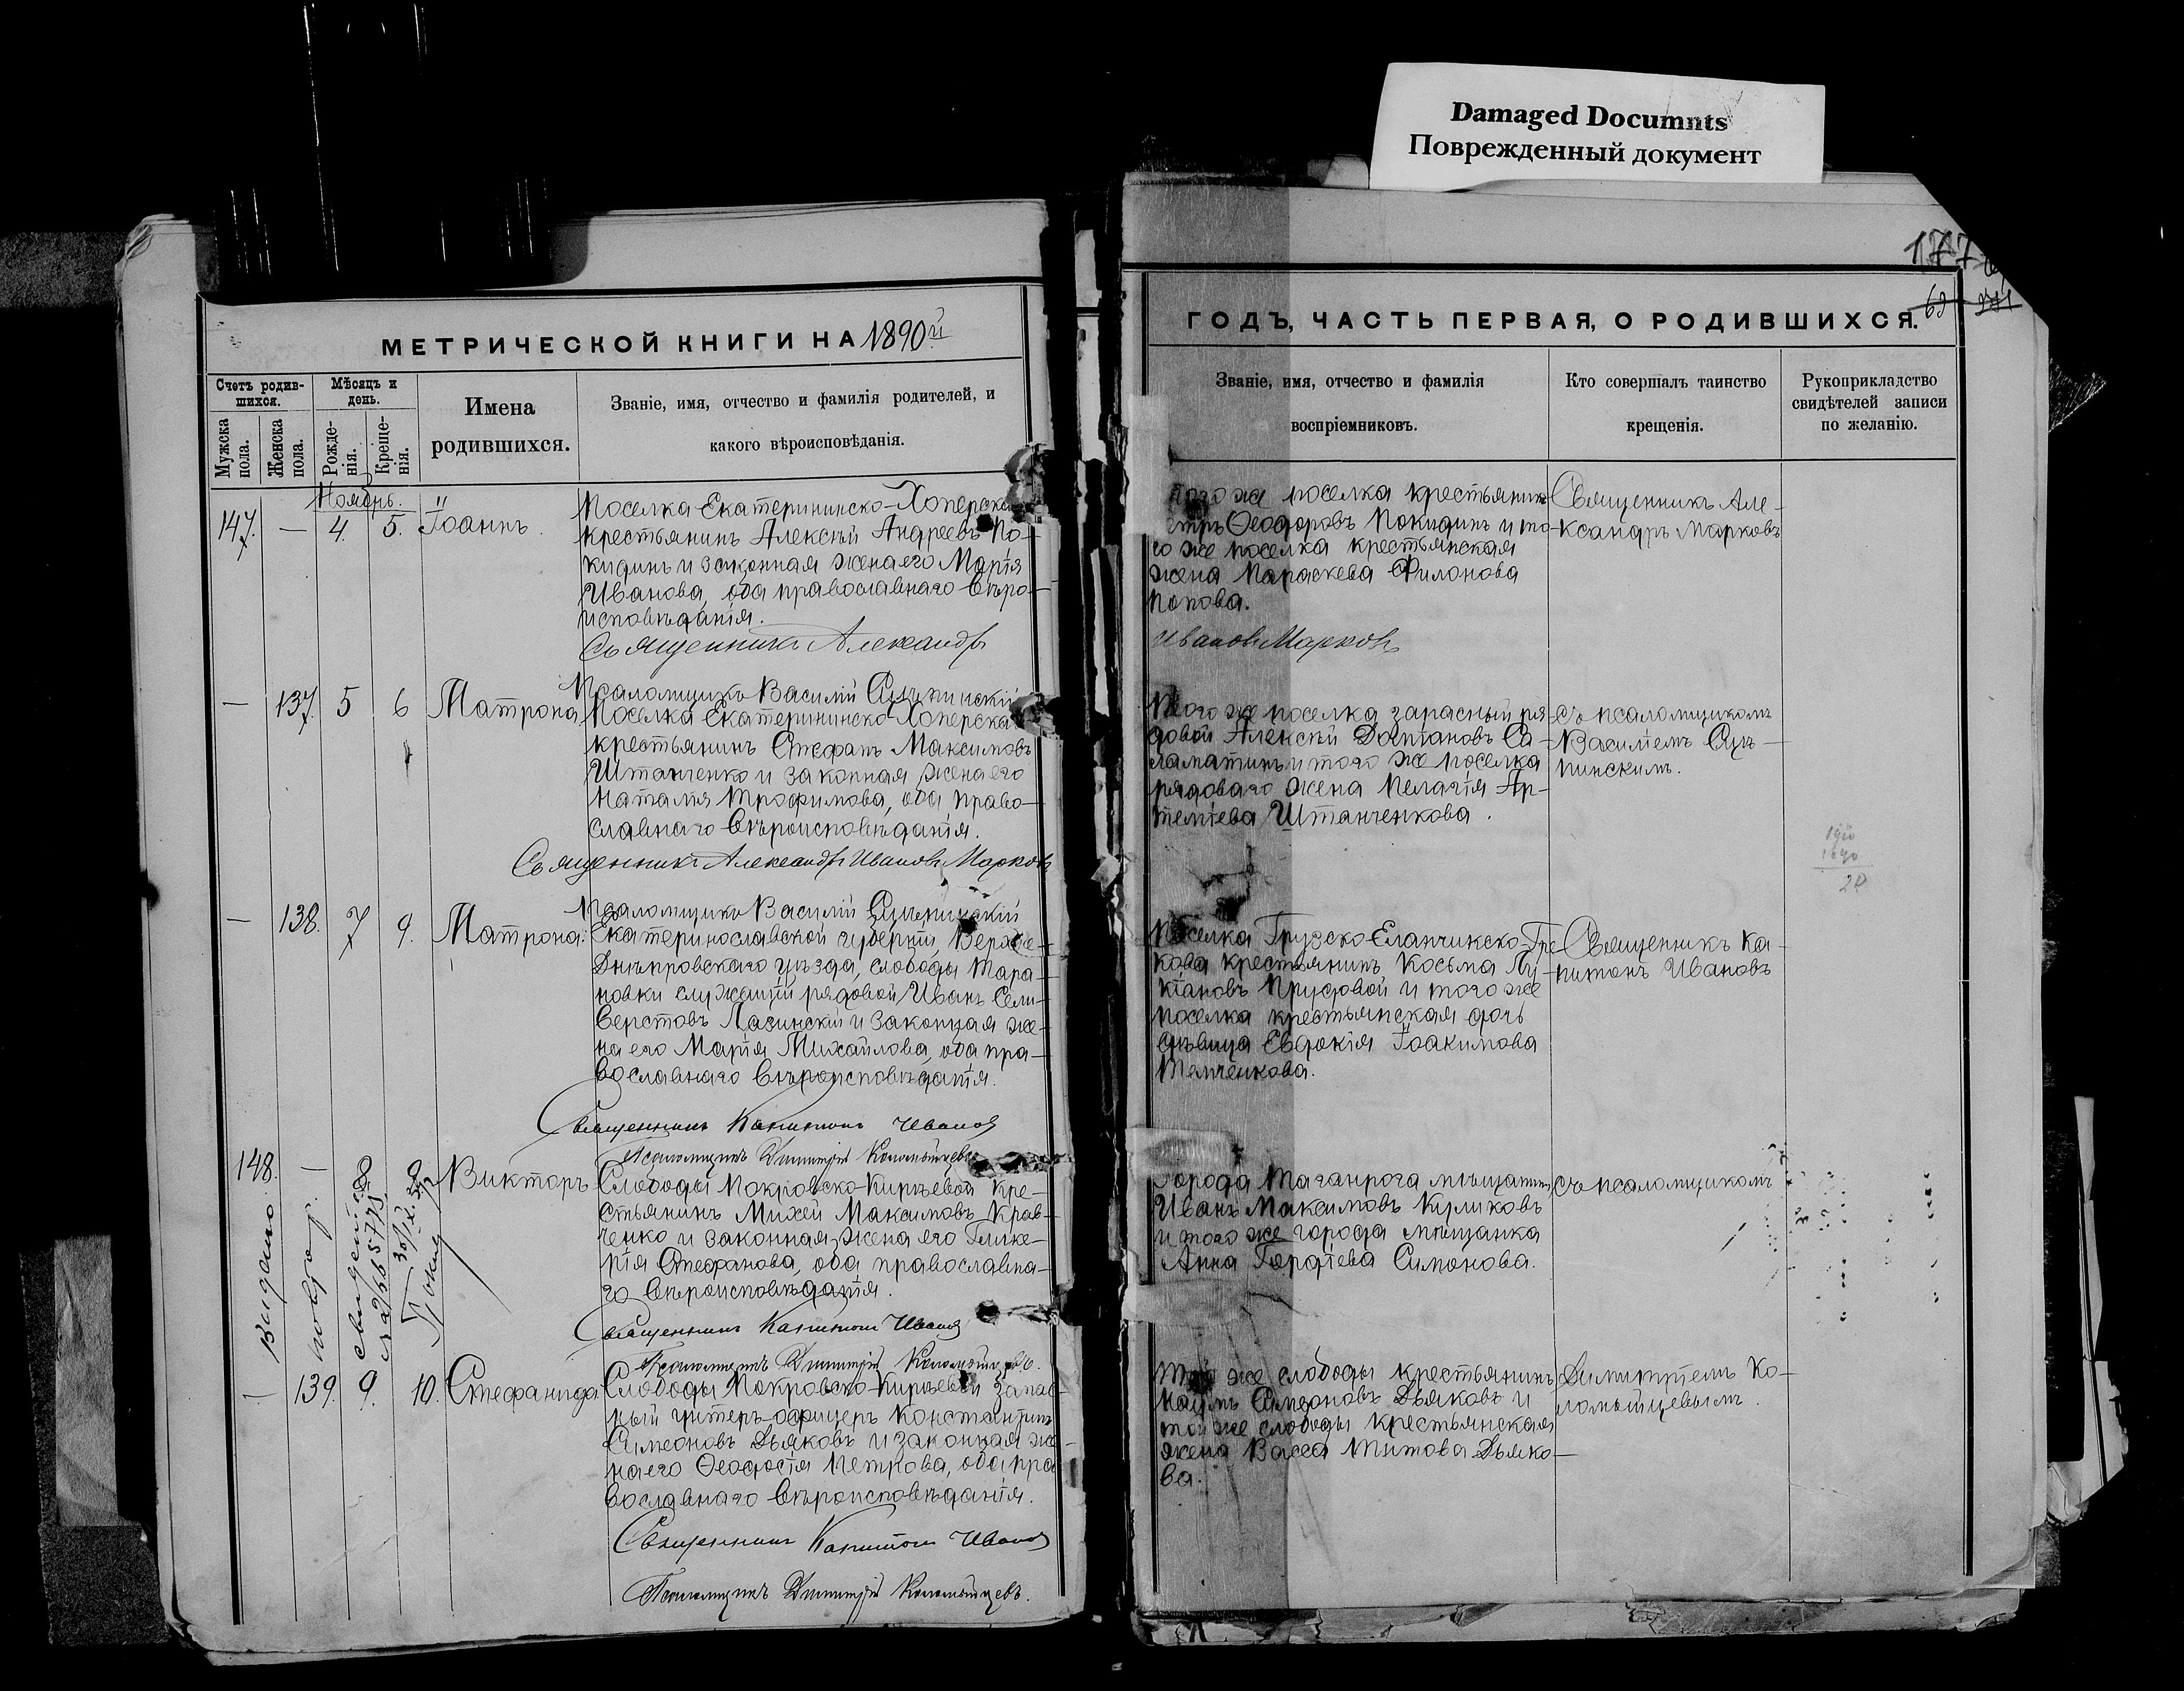 Damaged Documnts
Поврежденный документ
177
МЕТРИЧЕСКОЙ КНИГИ НА 1890й
Счетъ родив-
шихся.
Мѣсяцъ и
день.
Имена
родившихся.
Званіе, имя, отчество и фамилія родителей, и
какого вѣроисповѣданія.
Мужска
пола.
Женска
пола.
Рожде-
нія.
Креще-
нія.
Ноябрь.
147. — 4. 5. Іоаннъ.
Поселка Екатерининско-Хоперска
крестьянинъ Алексѣй Андреевъ По-
кидинъ и законная жена его Марія
Иванова, оба православнаго вѣро-
исповѣданія.
Священникъ Александръ
Псаломщикъ Василій
— 137. 5 6 Матрона
Поселка Екатерининско-Хоперска
крестьянинъ Стефанъ Максимовъ
Штанченко и законная жена его
Наталія Трофимова, оба право-
славнаго вѣроисповѣданія.
Священникъ Александръ Ивановъ Марковъ
Псаломщикъ Василій
— 138. 7 9. Матрона.
Екатеринославской губерніи, Верхне-
Днѣпровскаго уѣзда, слободы Тара-
новки служащій рядовой Иванъ Сели-
верстовъ Лазинскій и законная же-
на его Марія Михайлова, оба пра-
вославнаго вѣроисповѣданія.
Священникъ Капитонъ Ивановъ
Псаломщикъ Димитрій Коломыйцевъ
148. — 8. 9 Викторъ
Слободы Покровско-Кирѣевой кре-
стьянинъ Михей Максимовъ Крав-
ченко и законная жена его Глике-
рія Стефанова, оба православна-
го вѣроисповѣданія.
Священникъ Капитонъ Ивановъ
Псаломщикъ Димитрій Коломыйцевъ.
Выдано
повтор.
свидет.
— 139. 9. 10. Стефанида
Слободы Покровско-Кирѣевой запас-
ный унтеръ-офицеръ Константинъ
Симеоновъ Дьяковъ и законная же-
на его Ѳеодосія Петкова, оба пра-
вославнаго вѣроисповѣданія.
Священникъ Капитонъ Ивановъ
Псаломщикъ Димитрій Коломыйцевъ.
ГОДЪ, ЧАСТЬ ПЕРВАЯ, О РОДИВШИХСЯ.
Званіе, имя, отчество и фамилія
воспріемниковъ.
Кто совершалъ таинство
крещенія.
Рукоприкладство
свидѣтелей записи
по желанію.
того же поселка крестьянинъ
етръ Ѳеодоровъ Покидинъ и то-
го же поселка крестьянская
жена Параскева Филонова
Попова.
Ивановъ Марковъ
Священникъ Але-
ксандръ Марковъ
Того же поселка запасный ря-
довой Алексѣй Даміановъ Са-
ламатинъ и того же поселка
рядоваго жена Пелагія Ар-
теміева Штанченкова.
съ псаломщикомъ
Василіемъ
1910
1890
20
Поселка Грузско-Еланчикско-Гре-
кова крестьянинъ Косьма Лу-
кіановъ Прудовой и того же
поселка крестьянская дочь
дѣвица Евдокія Іоакимова
Темченкова.
Священникъ Ка-
питонъ Ивановъ
Города Таганрога мѣщанинъ
Иванъ Максимовъ Куликовъ
и того же города мѣщанка
Анна Гордіева Симонова.
съ псаломщикомъ
Той же слободы крестьянинъ
Наумъ Симеоновъ Дьяковъ и
той же слободы крестьянская
жена Васса Титова Дьяко-
ва.
Димитріемъ Ко-
ломыйцевымъ.